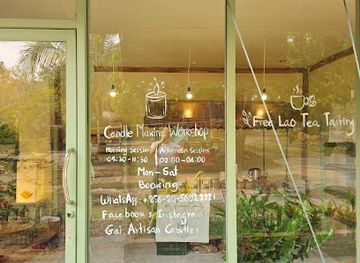 Candle Making Workshop
Morning Session
09:30 - 11:30
Afternoon Session
02:00 - 04:00
Mon-Sat
Booking
WhatsApp: +856-20-5692 2221
Facebook & Instagram
Gai Artisan Candles
Free Lao Tea Tasting